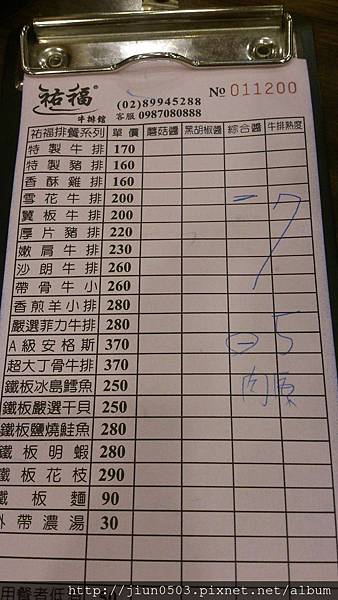 祐福
牛排館
(02)89945288
客服 0987080888
№ 011200
祐福排餐系列 單價 蘑菇醬 黑胡椒醬 綜合醬 牛排熟度
特製牛排 170
特製豬排 160
香酥雞排 160
雪花牛排 200 一 7
翼板牛排 200
厚片豬排 220
嫩肩牛排 230
沙朗牛排 260
帶骨牛小 260
香煎羊小排 280
嚴選菲力牛排 280
A級安格斯 370 5
超大丁骨牛排 370
鐵板冰島鱈魚 250
鐵板嚴選干貝 250
鐵板鹽燒鮭魚 280
鐵板明蝦 280
鐵板花枝 290
鐵板麵 90
外帶濃湯 30
用餐者低
http://jiun0503.pixnet.net/album